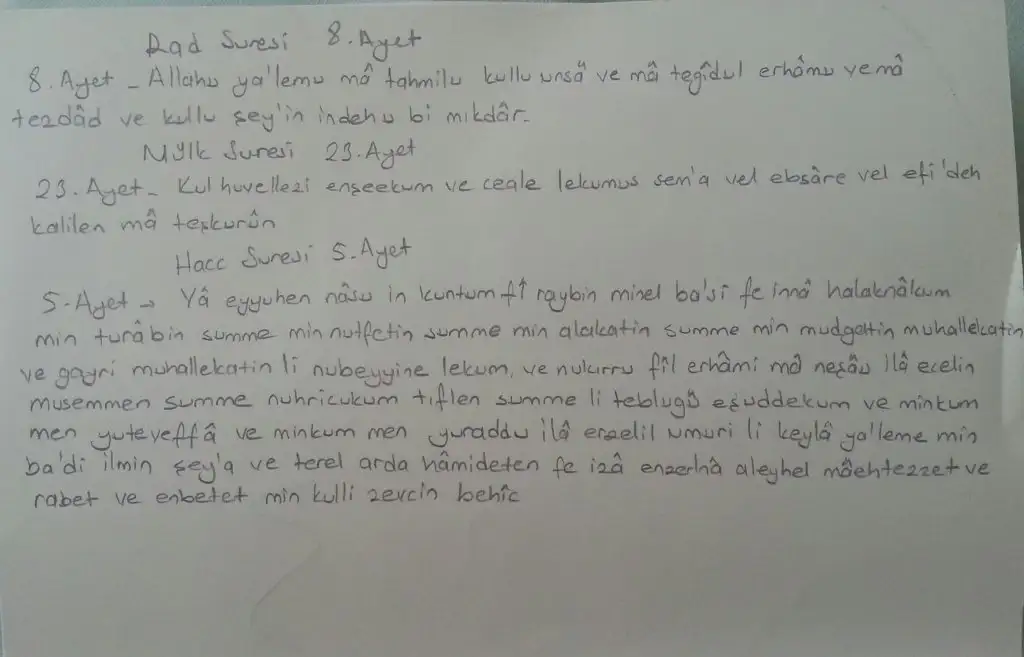 Rad Suresi 8. Ayet
8. Ayet - Allahu ya'lemu mâ tahmilu kullu unsâ ve mâ tegîdul erhâmu ve mâ
tezdâd ve kullu şey'in indehu bi mikdâr.
Mülk Suresi 23. Ayet
23. Ayet - Kul huvellezi enşeekum ve ceale lekumus sem'a vel ebsâre vel efi'deh
kalilen mâ teşkurûn
Hacc Suresi 5. Ayet
5. Ayet → Yâ eyyuhen nâsu in kuntum fî raybin minel ba'si fe innâ halaknâkum
min turâbin summe min nutfetin summe min alakatin summe min mudgattin muhallekatin
ve gayri muhallekatin li nubeyyine lekum, ve nukırru fîl erhâmi mâ neşâu ilâ ecelin
musemmen summe nuhricukum tıflen summe li teblugû eşuddekum ve minkum
men yuteveffâ ve minkum men yuraddu ilâ erzelil umuri li keylâ ya'leme min
ba'di ilmin şey'a ve terel arda hâmideten fe izâ enzelnâ aleyhel mâehtezzet ve
rabet ve enbetet min kulli zevcin behîc